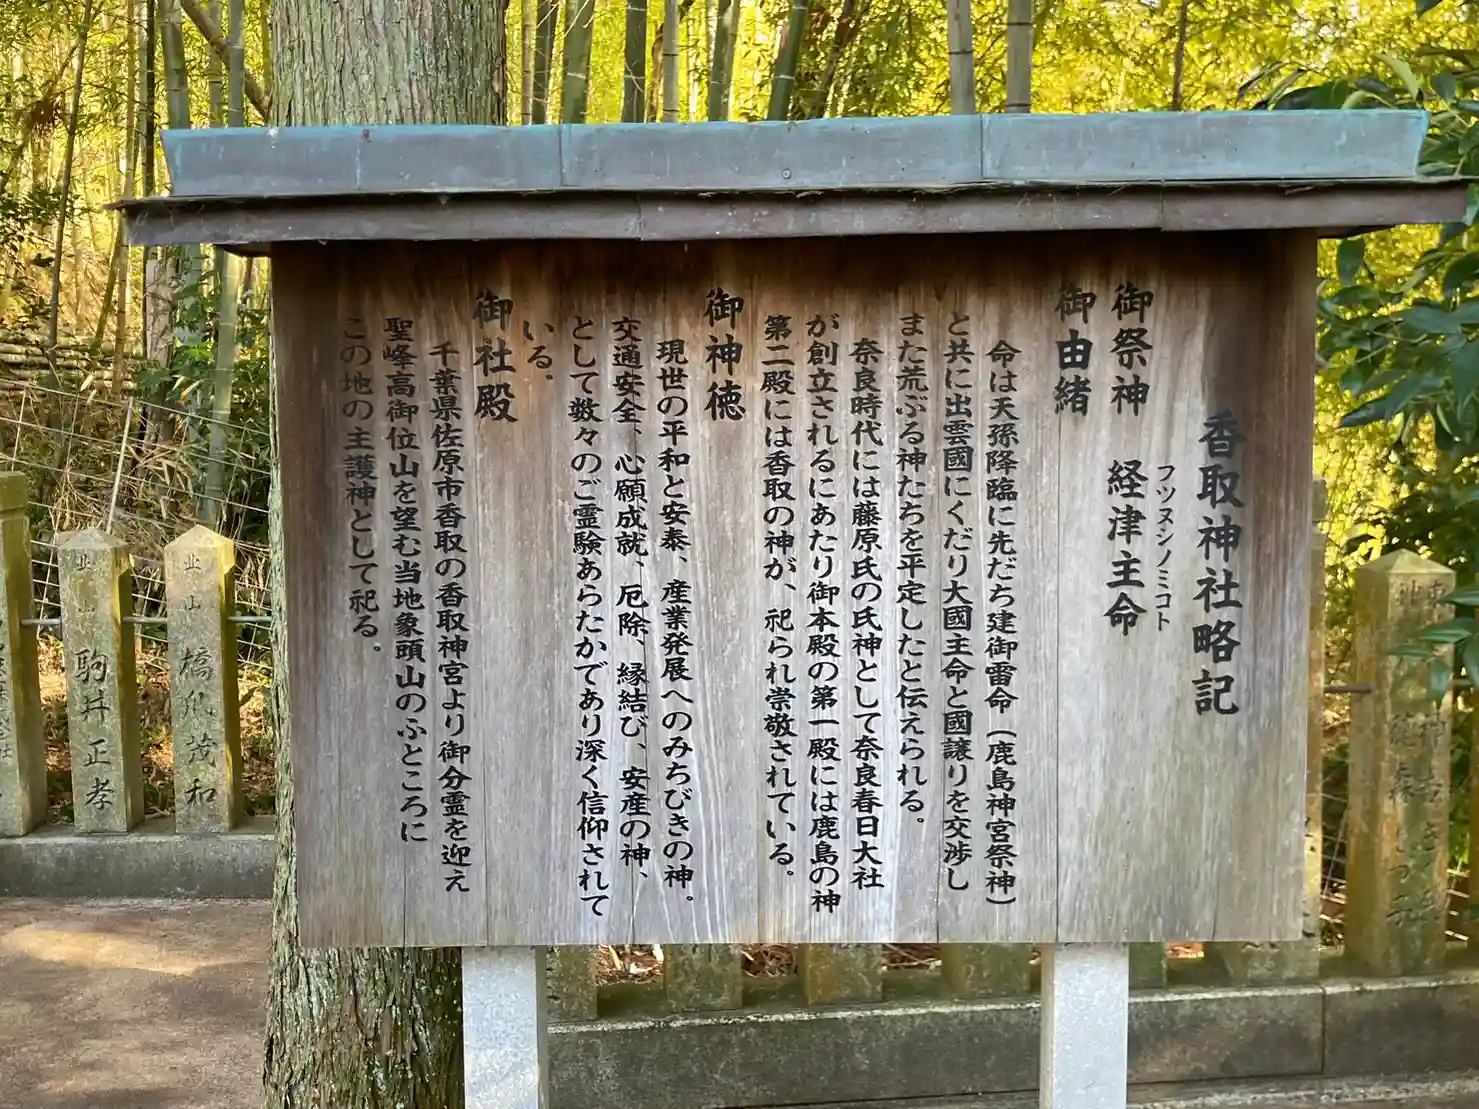 香取神社略記
御祭神 経津主命
フツヌシノミコト
御由緒
命は天孫降臨に先だち建御雷命（鹿島神宮祭神）
と共に出雲國にくだり大國主命と國譲りを交渉し
また荒ぶる神たちを平定したと伝えられる。
奈良時代には藤原氏の氏神として奈良春日大社
が創立されるにあたり御本殿の第一殿には鹿島の神
第二殿には香取の神が、祀られ崇敬されている。
御神徳
現世の平和と安泰、産業発展へのみちびきの神。
交通安全、心願成就、厄除、縁結び、安産の神、
として数々のご霊験あらたかであり深く信仰されて
いる。
御社殿
千葉県佐原市香取の香取神宮より御分霊を迎え
聖峰高御位山を望む当地象頭山のふところに
この地の主護神として祀る。
駒井正孝
茂和